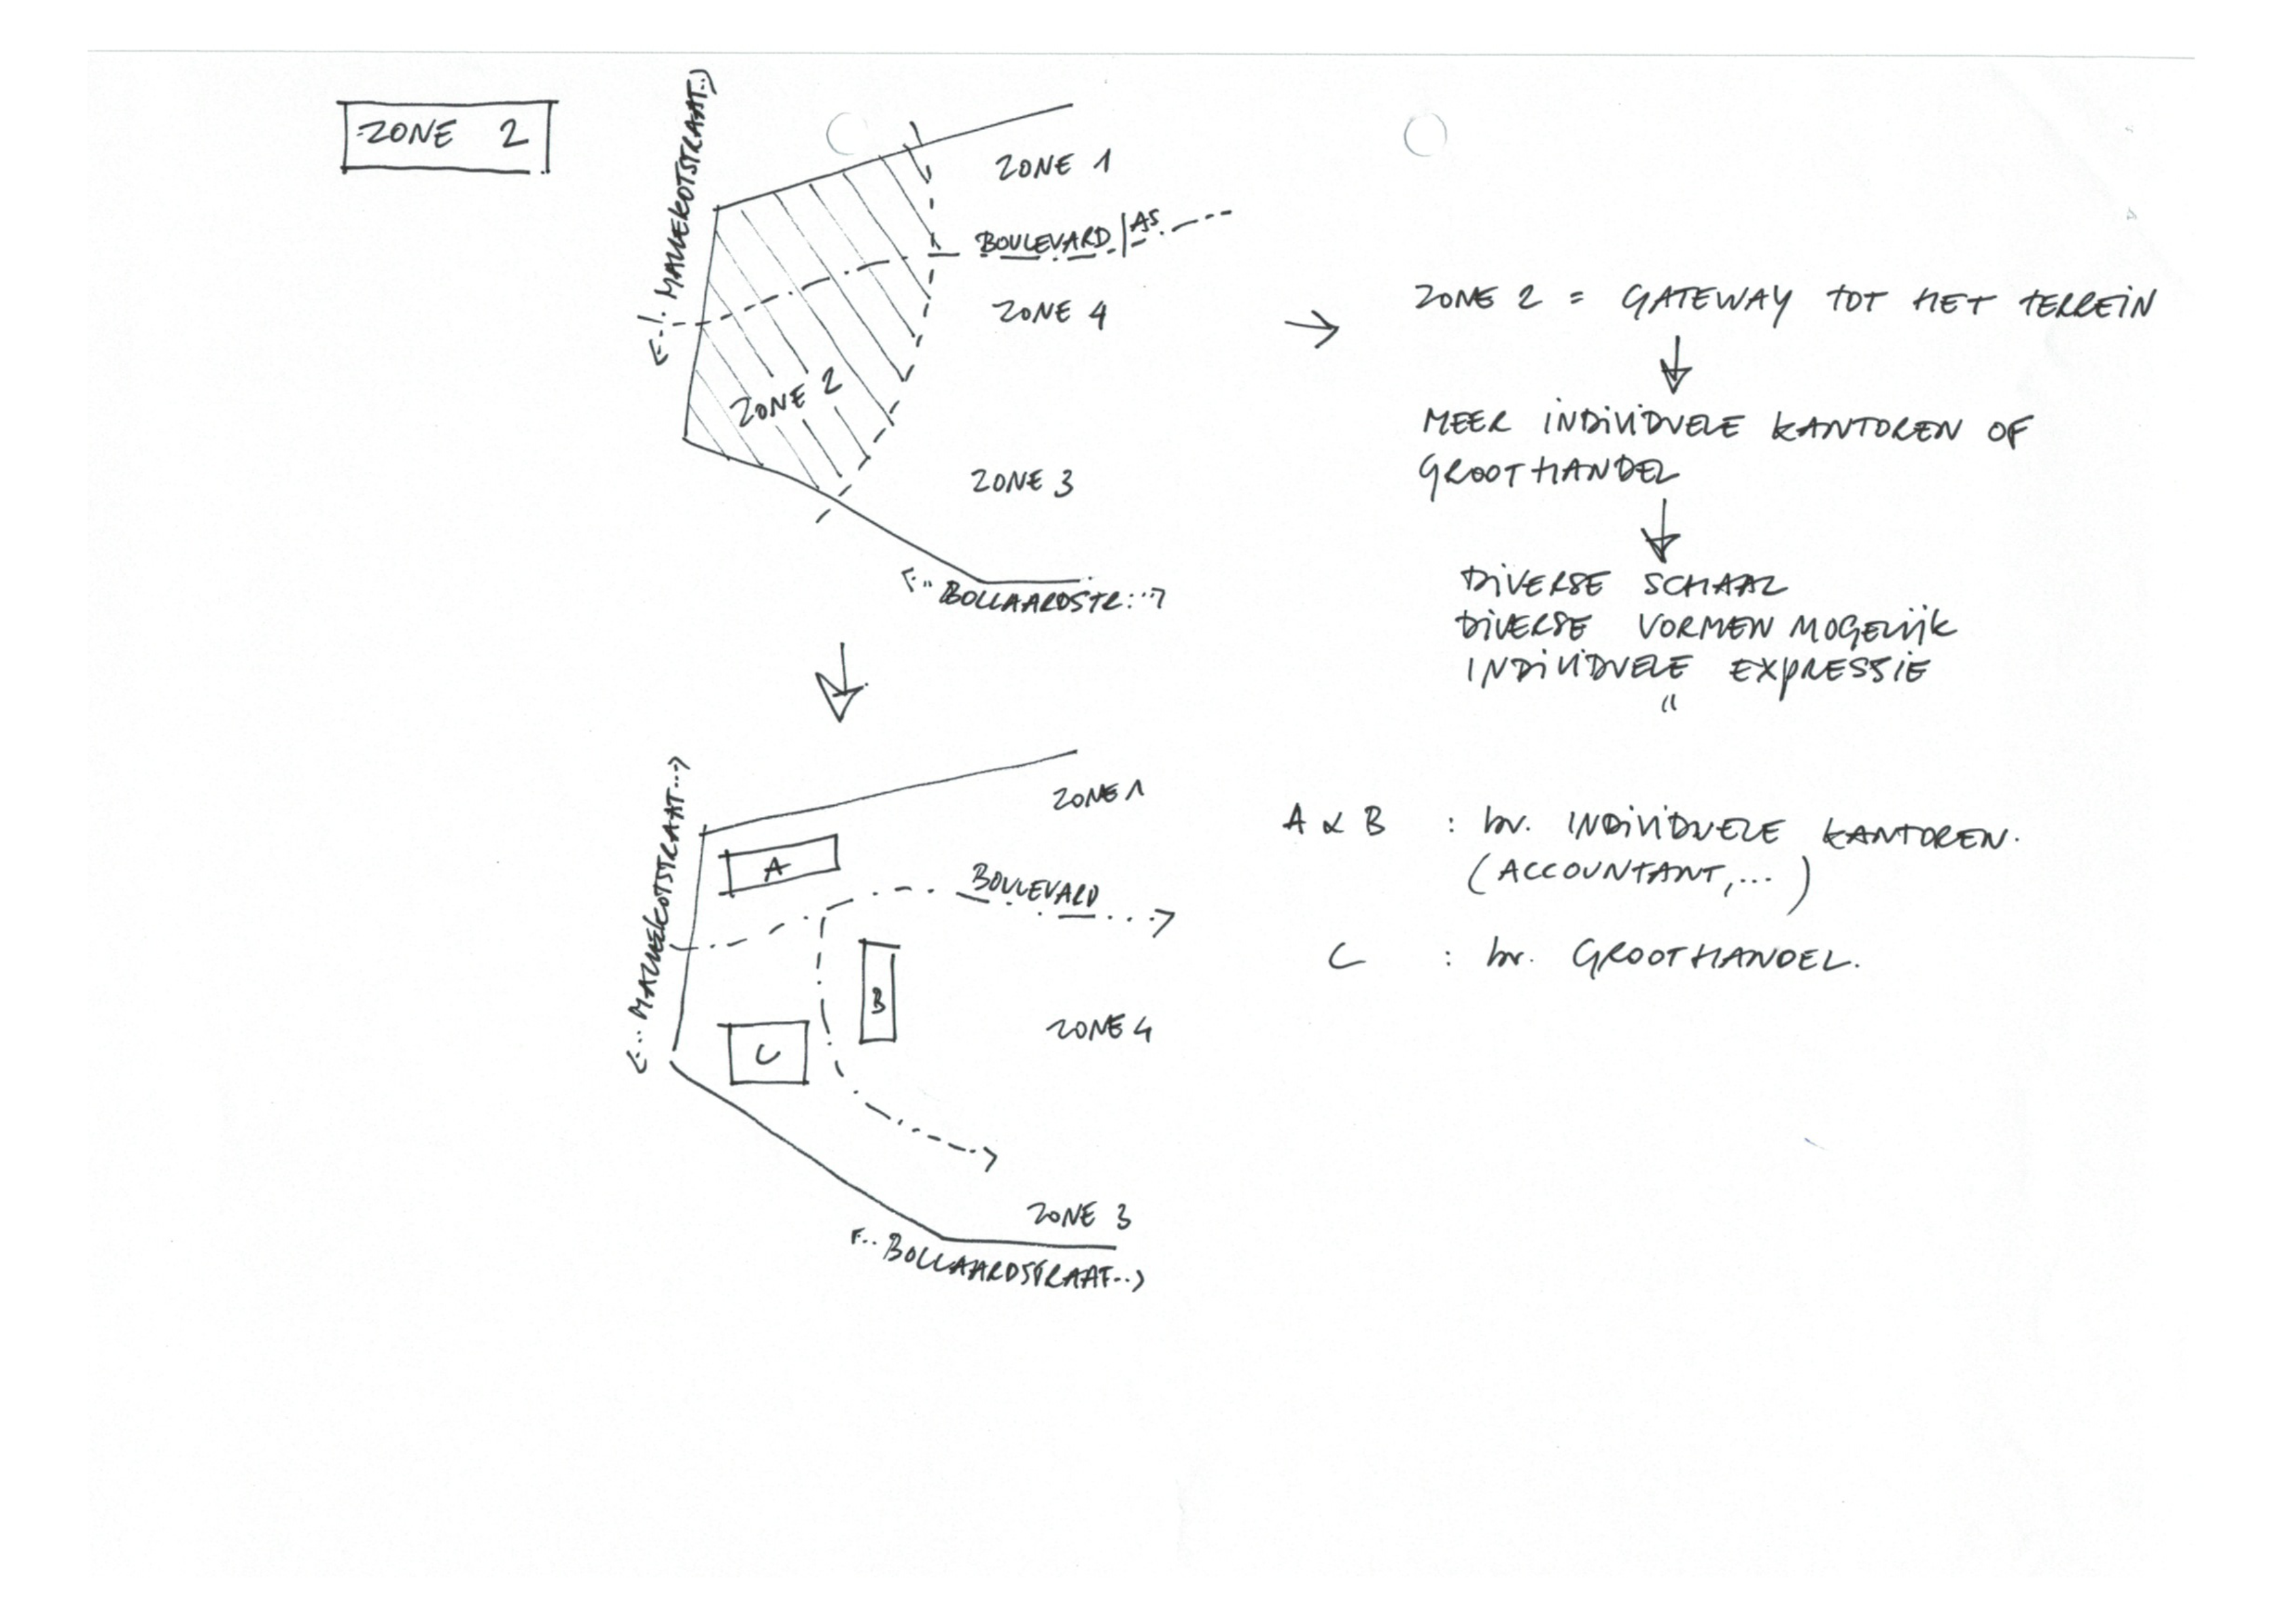 ZONE 2
MALLEKOTSTRAAT
ZONE 1
BOULEVARD/AS
ZONE 4
ZONE 2
ZONE 3
BOLLAARDSTR.
ZONE 2 = GATEWAY TOT HET TERREIN
MEER INDIVIDUELE KANTOREN OF
GROOTHANDEL
DIVERSE SCHAAL
DIVERSE VORMEN MOGELIJK
INDIVIDUELE EXPRESSIE
"
MALLEKOTSTRAAT
ZONE 1
A
BOULEVARD
B
C
ZONE 4
ZONE 3
BOLLAARDSTRAAT
A & B : bv. INDIVIDUELE KANTOREN.
(ACCOUNTANT,...)
C : bv. GROOTHANDEL.